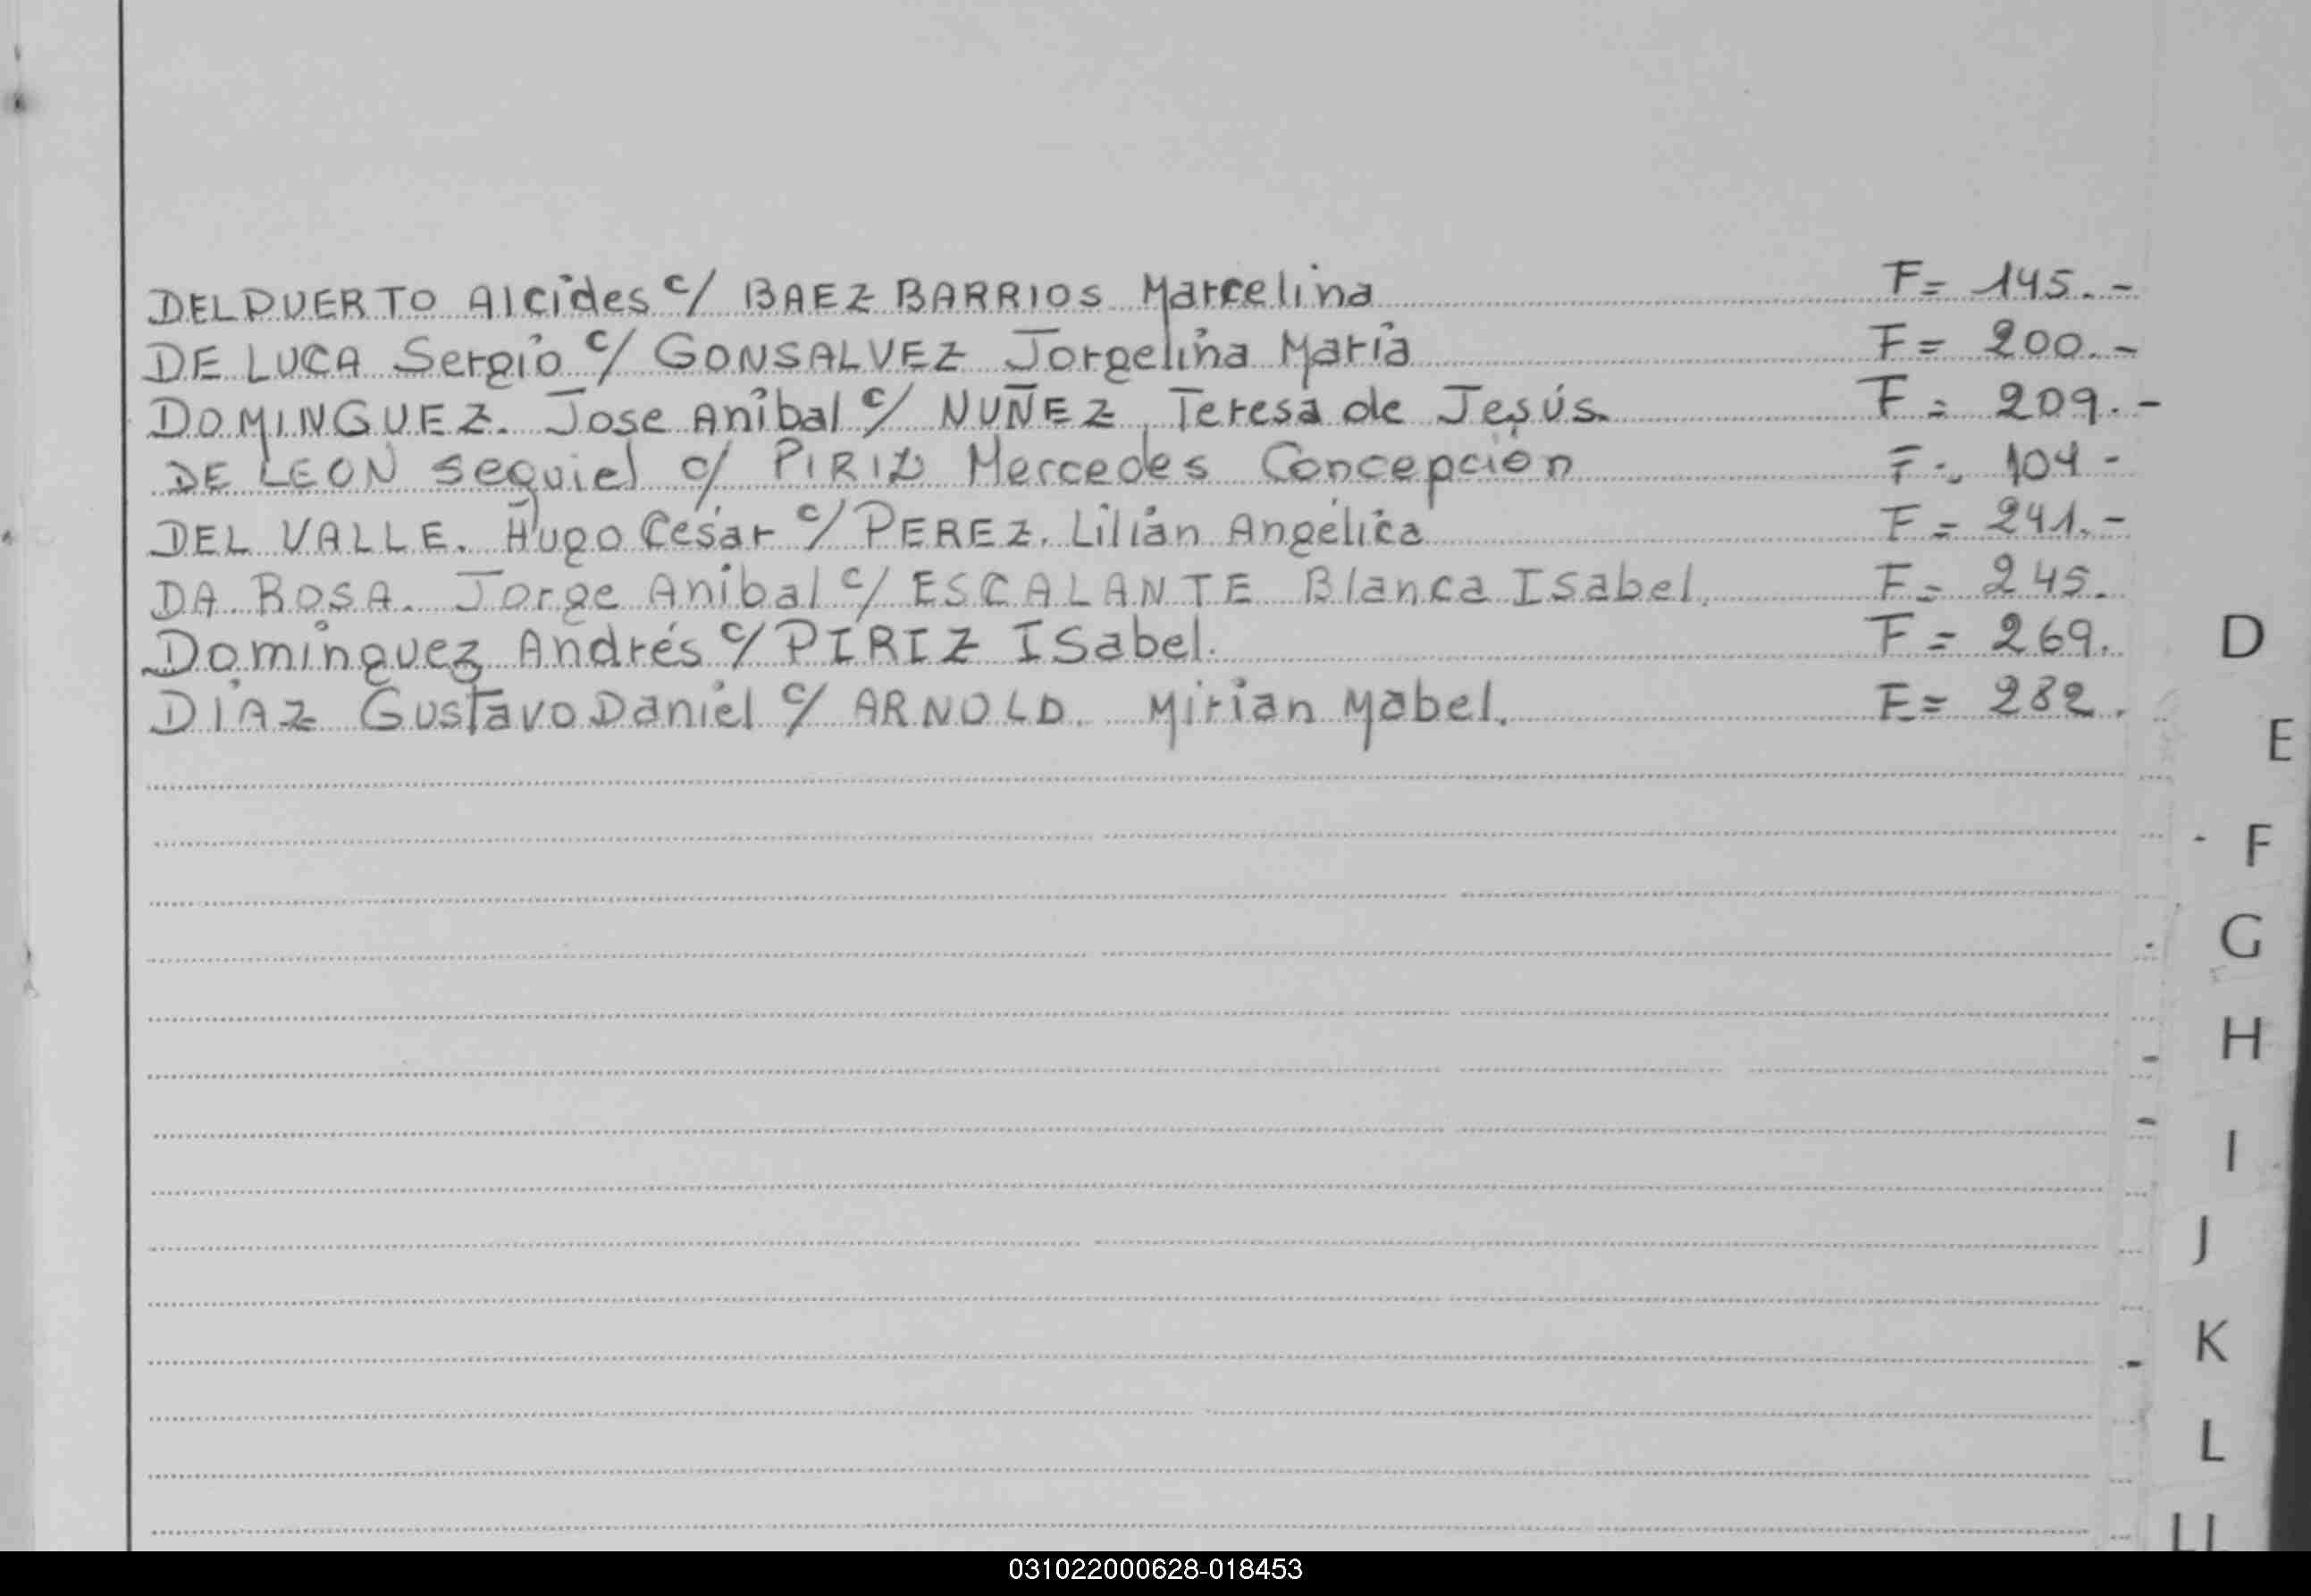 DELPUERTO Alcides c/ BAEZ BARRIOS Marcelina F= 145.-
DE LUCA Sergio c/ GONSALVEZ Jorgelina Maria F= 200.-
DOMINGUEZ. Jose Anibal c/ NUÑEZ Teresa de Jesús. F= 209.-
DE LEON sequiel c/ PIRIZ Mercedes Concepción F= 104-
DEL VALLE. Hugo Cesar c/ PEREZ. Lilian Angélica F= 241.-
DA ROSA. Jorge Anibal c/ ESCALANTE Blanca Isabel. F= 245.
Dominguez Andrés c/ PIRIZ ISabel. F= 269.
DIAZ Gustavo Daniel c/ ARNOLD. Mirian Mabel. F= 282.
D
E
F
G
H
I
J
K
L
LL
031022000628-018453